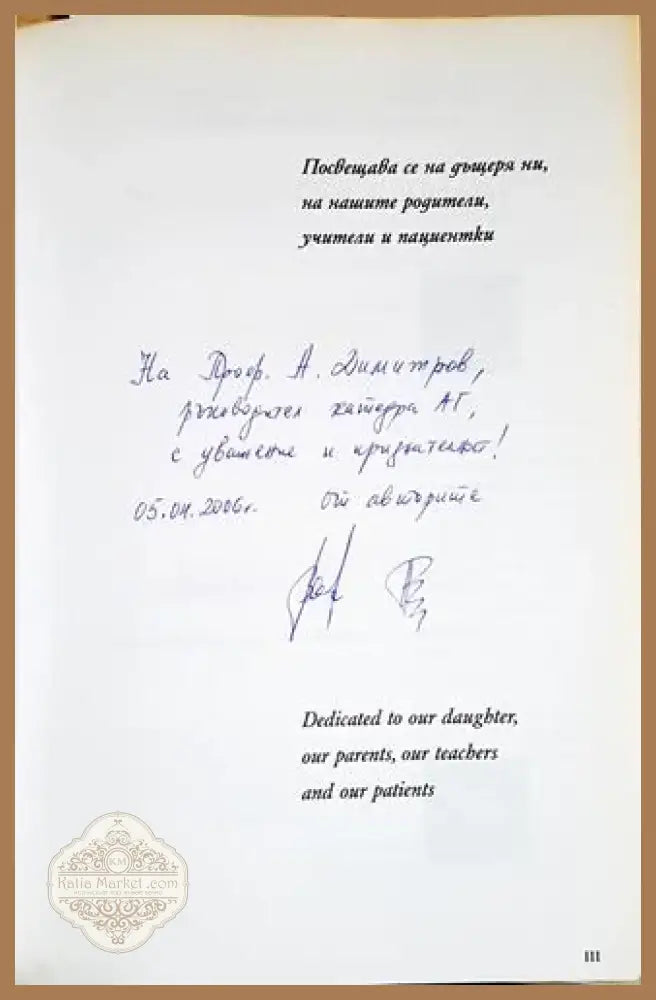 Посвещава се на дъщеря ни,
на нашите родители,
учители и пациентки
На Проф. А. Димитров,
ръководител катедра АГ,
с уважение и признателност!
05.04.2006г. От авторите
Dedicated to our daughter,
our parents, our teachers
and our patients
KM
Katia Market.com
III